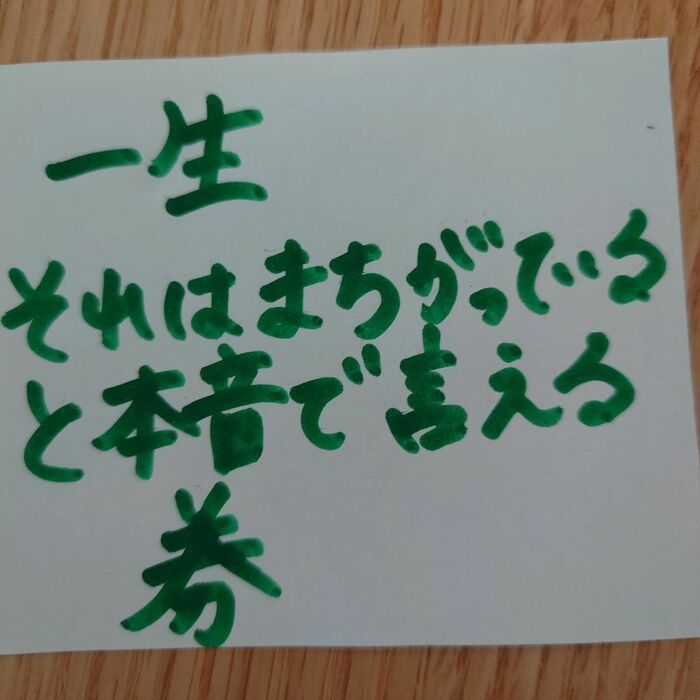 一生
それはまちがっている
と本音で言える
券